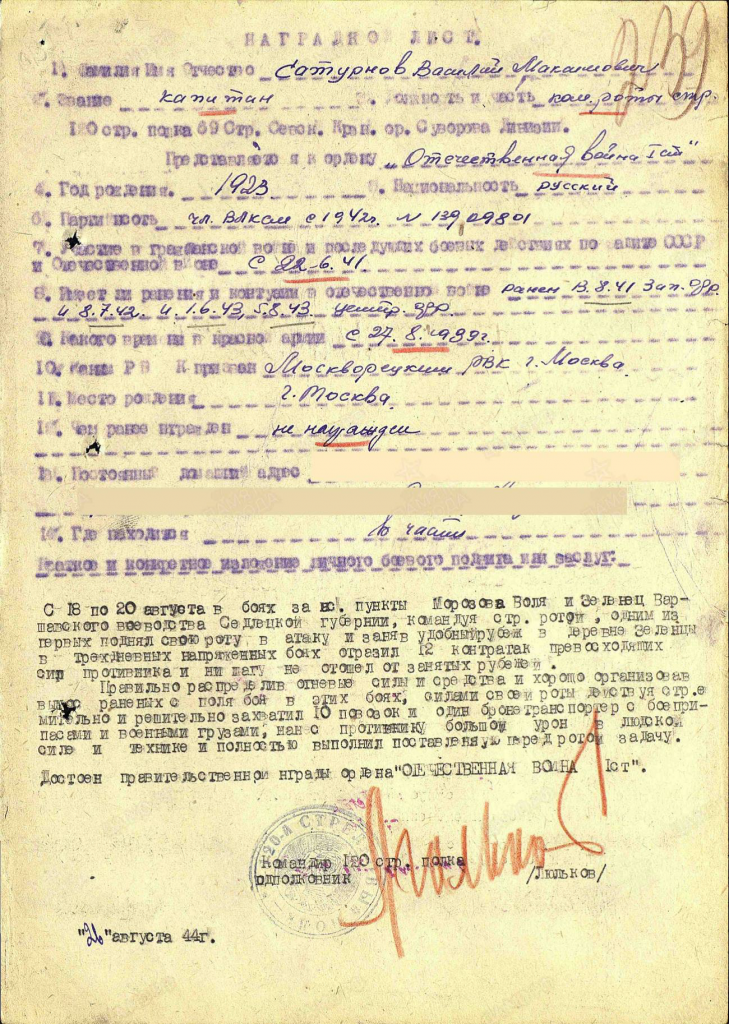 239
НАГРАДНОЙ ЛИСТ.
1. Фамилия Имя Отчество Сатурнов Василий Максимович
2. Звание капитан 3. Должность и часть ком. роты стр.
120 стр. полка 69 Стр. Севск. Кран. ор. Суворова Дивизии.
Представляется к ордену „Отечественная война I ст"
4. Год рождения. 1923 5. Национальность русский
6. Партийность чл. ВЛКСМ с 1942г. N 13909801
7. Участие в гражданской войне и последующих боевых действиях по защите СССР
и Отечественной войне с 22-6.41.
8. Имеет ли ранения и контузии в отечественной войне ранен 8.41 Зап. фр.
и 8.7.42. и 1.6.43, 5.8.43. центр. фр.
9. С какого времени в красной армии с 27.8.1939г.
10. Каким РВК призван Москворецким РВК г. Москва.
11. Место рождения г. Москва.
12. Чем ранее награжден не награжден
13. Постоянный домашний адрес
14. Где находится в части
Краткое и конкретное изложение личного боевого подвига или заслуг:
С 18 по 20 августа в боях за нс. пункты Морозова Воля и Зеленец Вар-
шавского воеводства Седлецкой губернии, командуя стр. ротой, одним из
первых поднял свою роту в атаку и заняв удобный рубеж в деревне Зеленцы
в трехдневных напряженных боях отразил 12 контратак превосходящих
сил противника и ни шагу не отошел от занятых рубежей.
Правильно распределив огневые силы и средства и хорошо организовав
вынос раненых с поля боя в этих боях, силами своей роты действуя стр.е
мительно и решительно захватил 10 повозок и один бронетранспортер с боепри-
пасами и военными грузами, нанес противнику большой урон в людской
силе и технике и полностью выполнил поставленную перед ротой задачу.
Достоен правительственной нграды ордена "ОТЕЧЕСТВЕННАЯ ВОЙНА Iст".
120-й СТРЕЛКОВЫЙ ПОЛК
Командир 120 стр. полка
одполковник /Люльков/
"26" августа 44г.